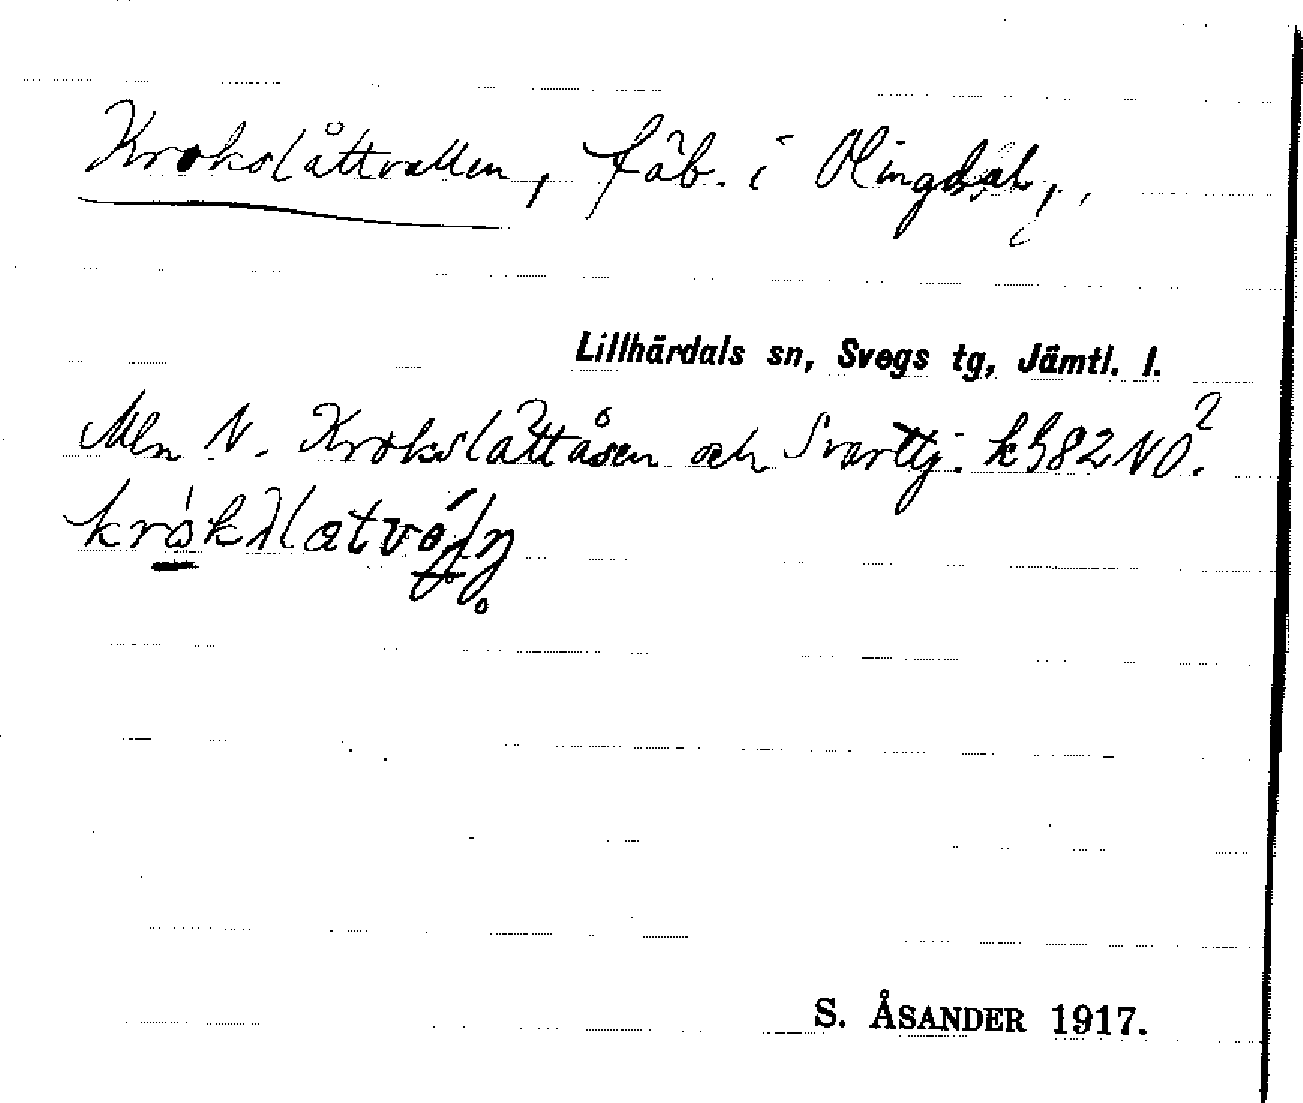 Krokslåttvallen, fäb. i Olingdal,
Lillhärdals sn, Svegs tg, Jämtl. l.
Mln N. Krokslåttåsen och Svarttj. kh82NO?
S. ÅSANDER 1917.